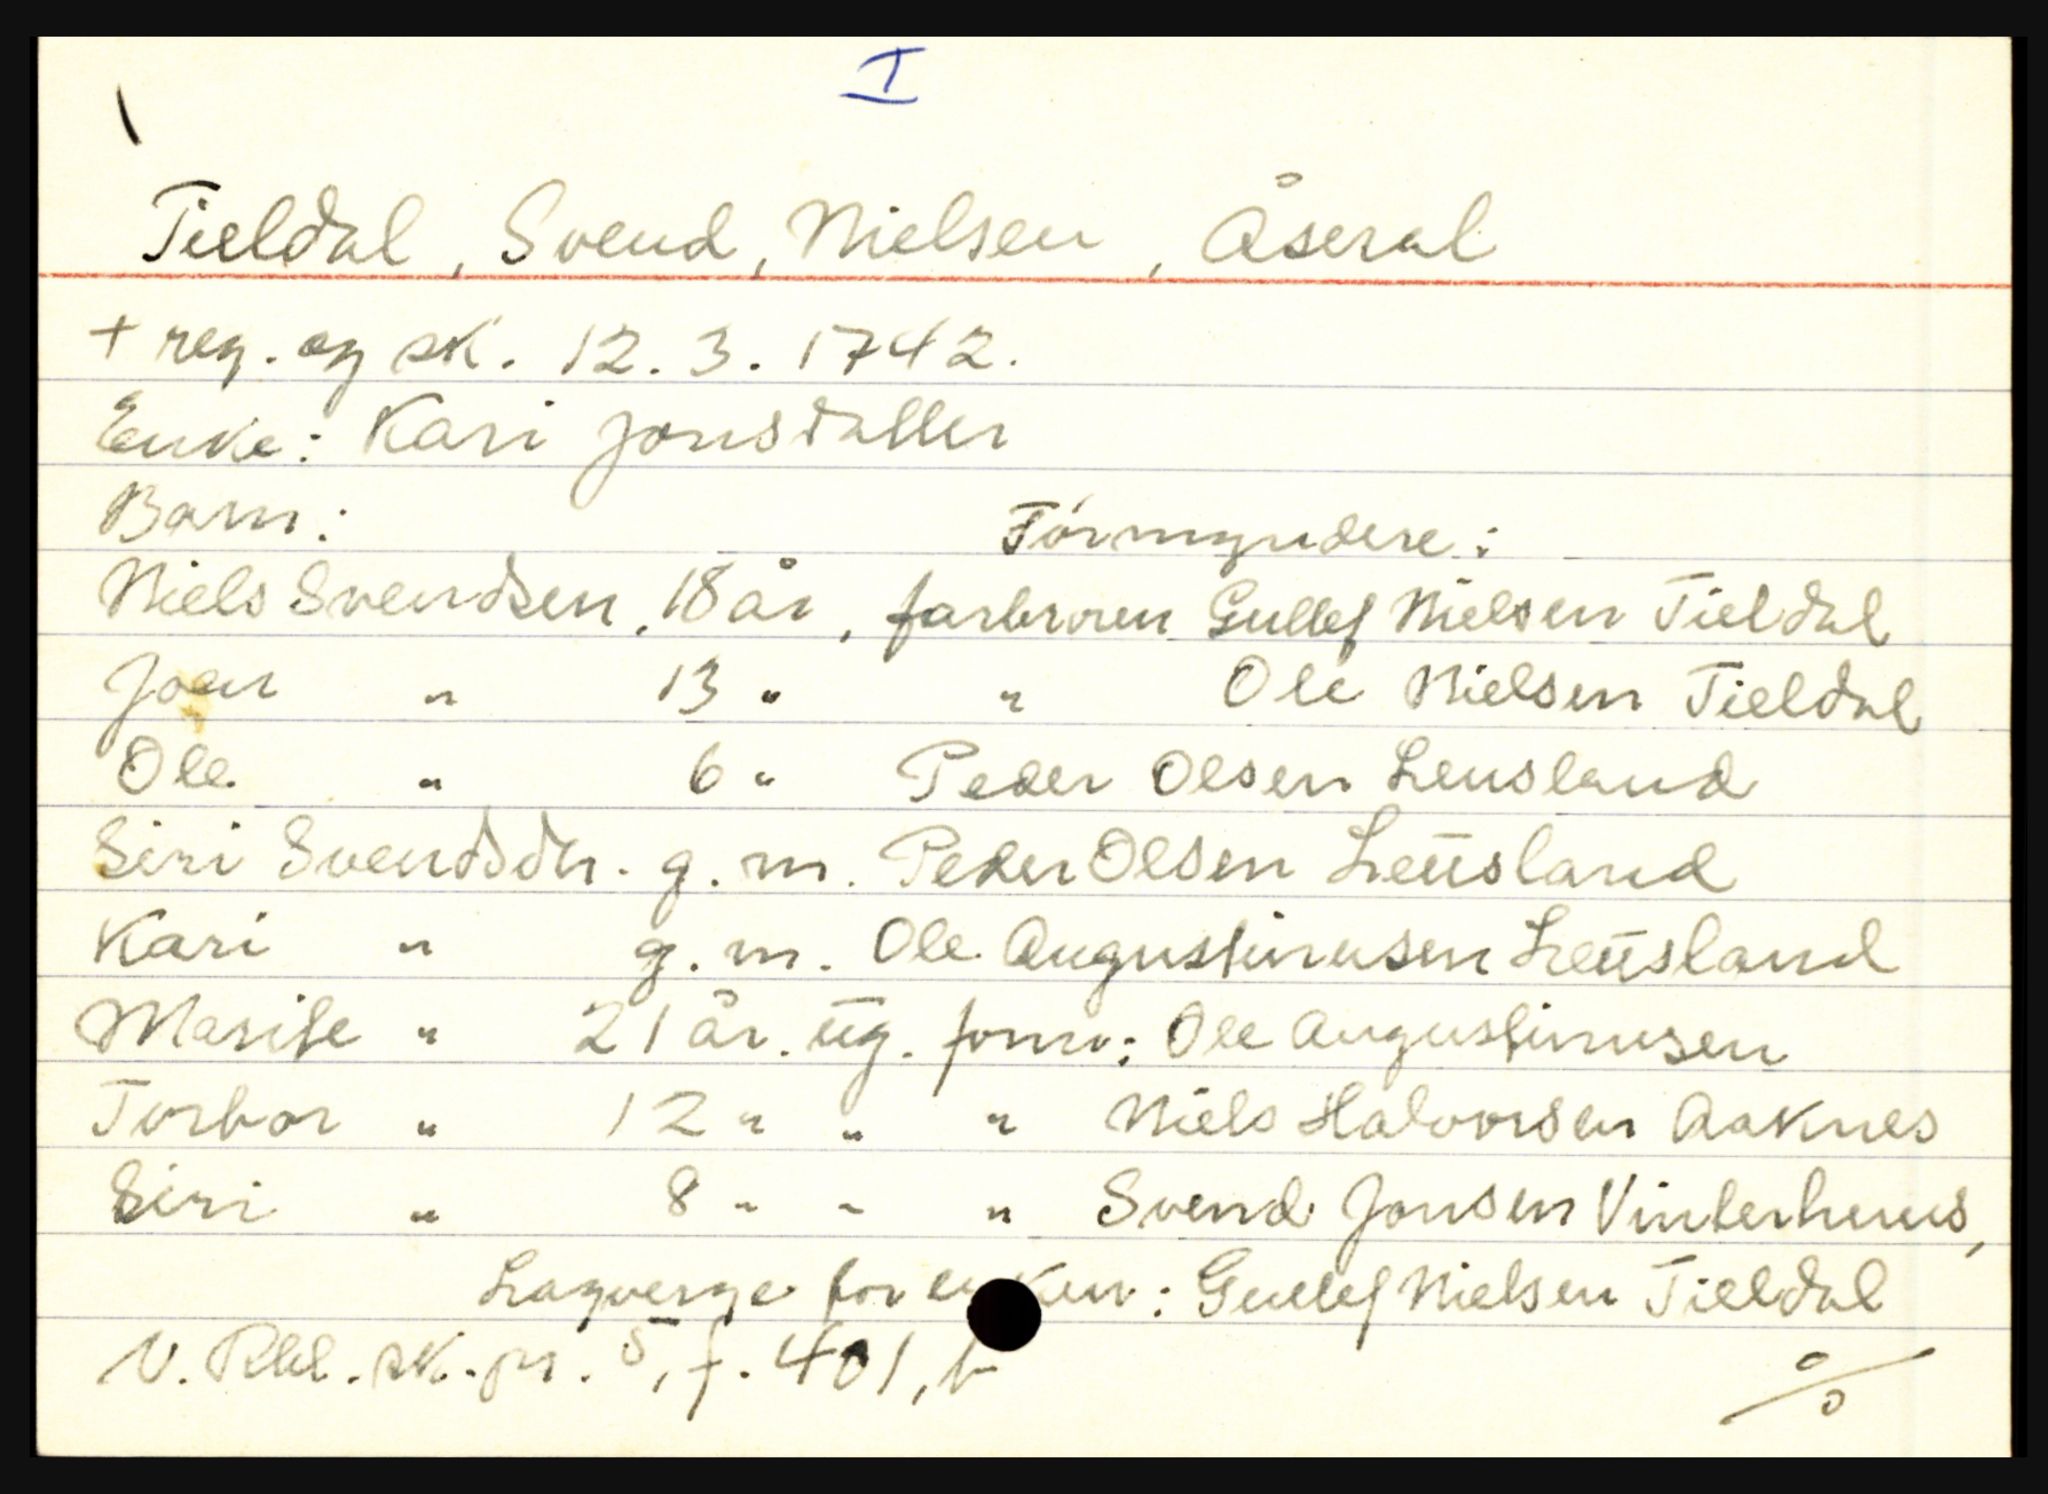 I
Tieldal, Svend, Nielsen, Åseral
+ reg. og sk. 12.3.1742.
Enke: Kari Jonsdatter
Barn: Formyndere:
Niels Svendsen, 18 år, farbroren Gullef Nielsen Tieldal
Joen " 13 " " Ole Nielsen Tieldal
Ole " 6 " Peder Olsen Leusland
Siri Svendsdtr. g.m. Peder Olsen Leusland
Kari " g.m. Ole Augustinusen Leusland
Marite " 21 år. ug. form: Ole Augustinusen
Torbor " 12 " " " Niels Halvorsen Aaknes
Siri " 8 " " " Svend Jonsen Vinterhuus,
Lagverge for enken: Gullef Nielsen Tieldal
N. Rbl. sk. pr. 5, f. 401, b
%